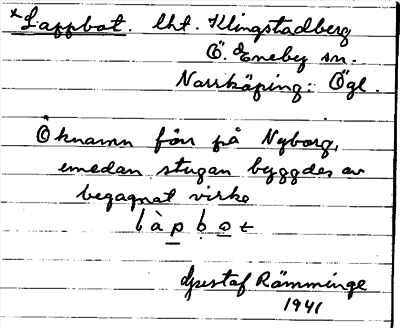 *Lappbot. lht. Klingstadberg
Ö. Eneby sn.
Norrköping: Ögl.
Öknamn förr på Nyborg,
emedan stugan byggdes av
begagnat virke
làpbot
Gustaf Rämminge
1941